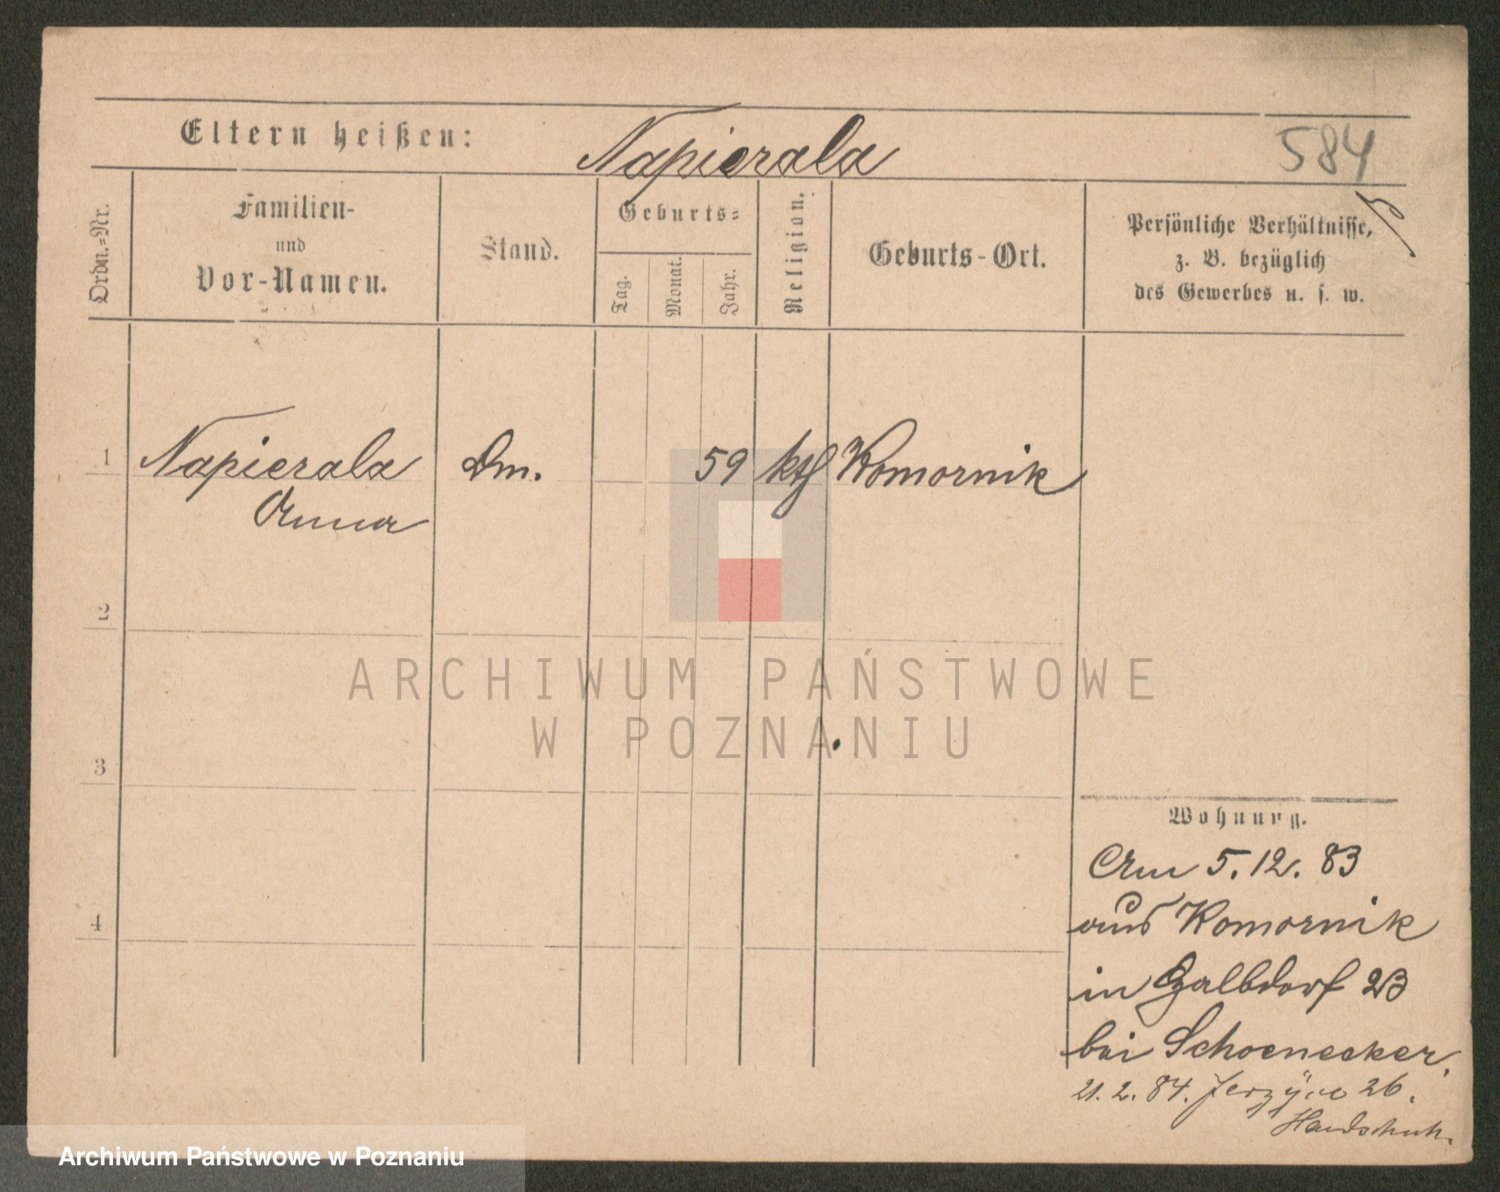 Eltern heißen: Napierala
584
Ordn.-Nr.
Familien-
und
Vor-Namen.
Stand.
Geburts-
Tag.
Monat.
Jahr.
Religion.
Geburts-Ort.
Persönliche Verhältnisse,
z. B. bezüglich
des Gewerbes u. s. w.
1 Napierala Dm. 59 kth Komornik
Anna
2
3
4
ARCHIWUM PAŃSTWOWE
W POZNANIU
Wohnung.
Am 5.12.83
aus Komornik
in Halbdorf 23
bei Schoenecker,
21.2.84. Jerzyce 26.
Handschuh.
Archiwum Państwowe w Poznaniu